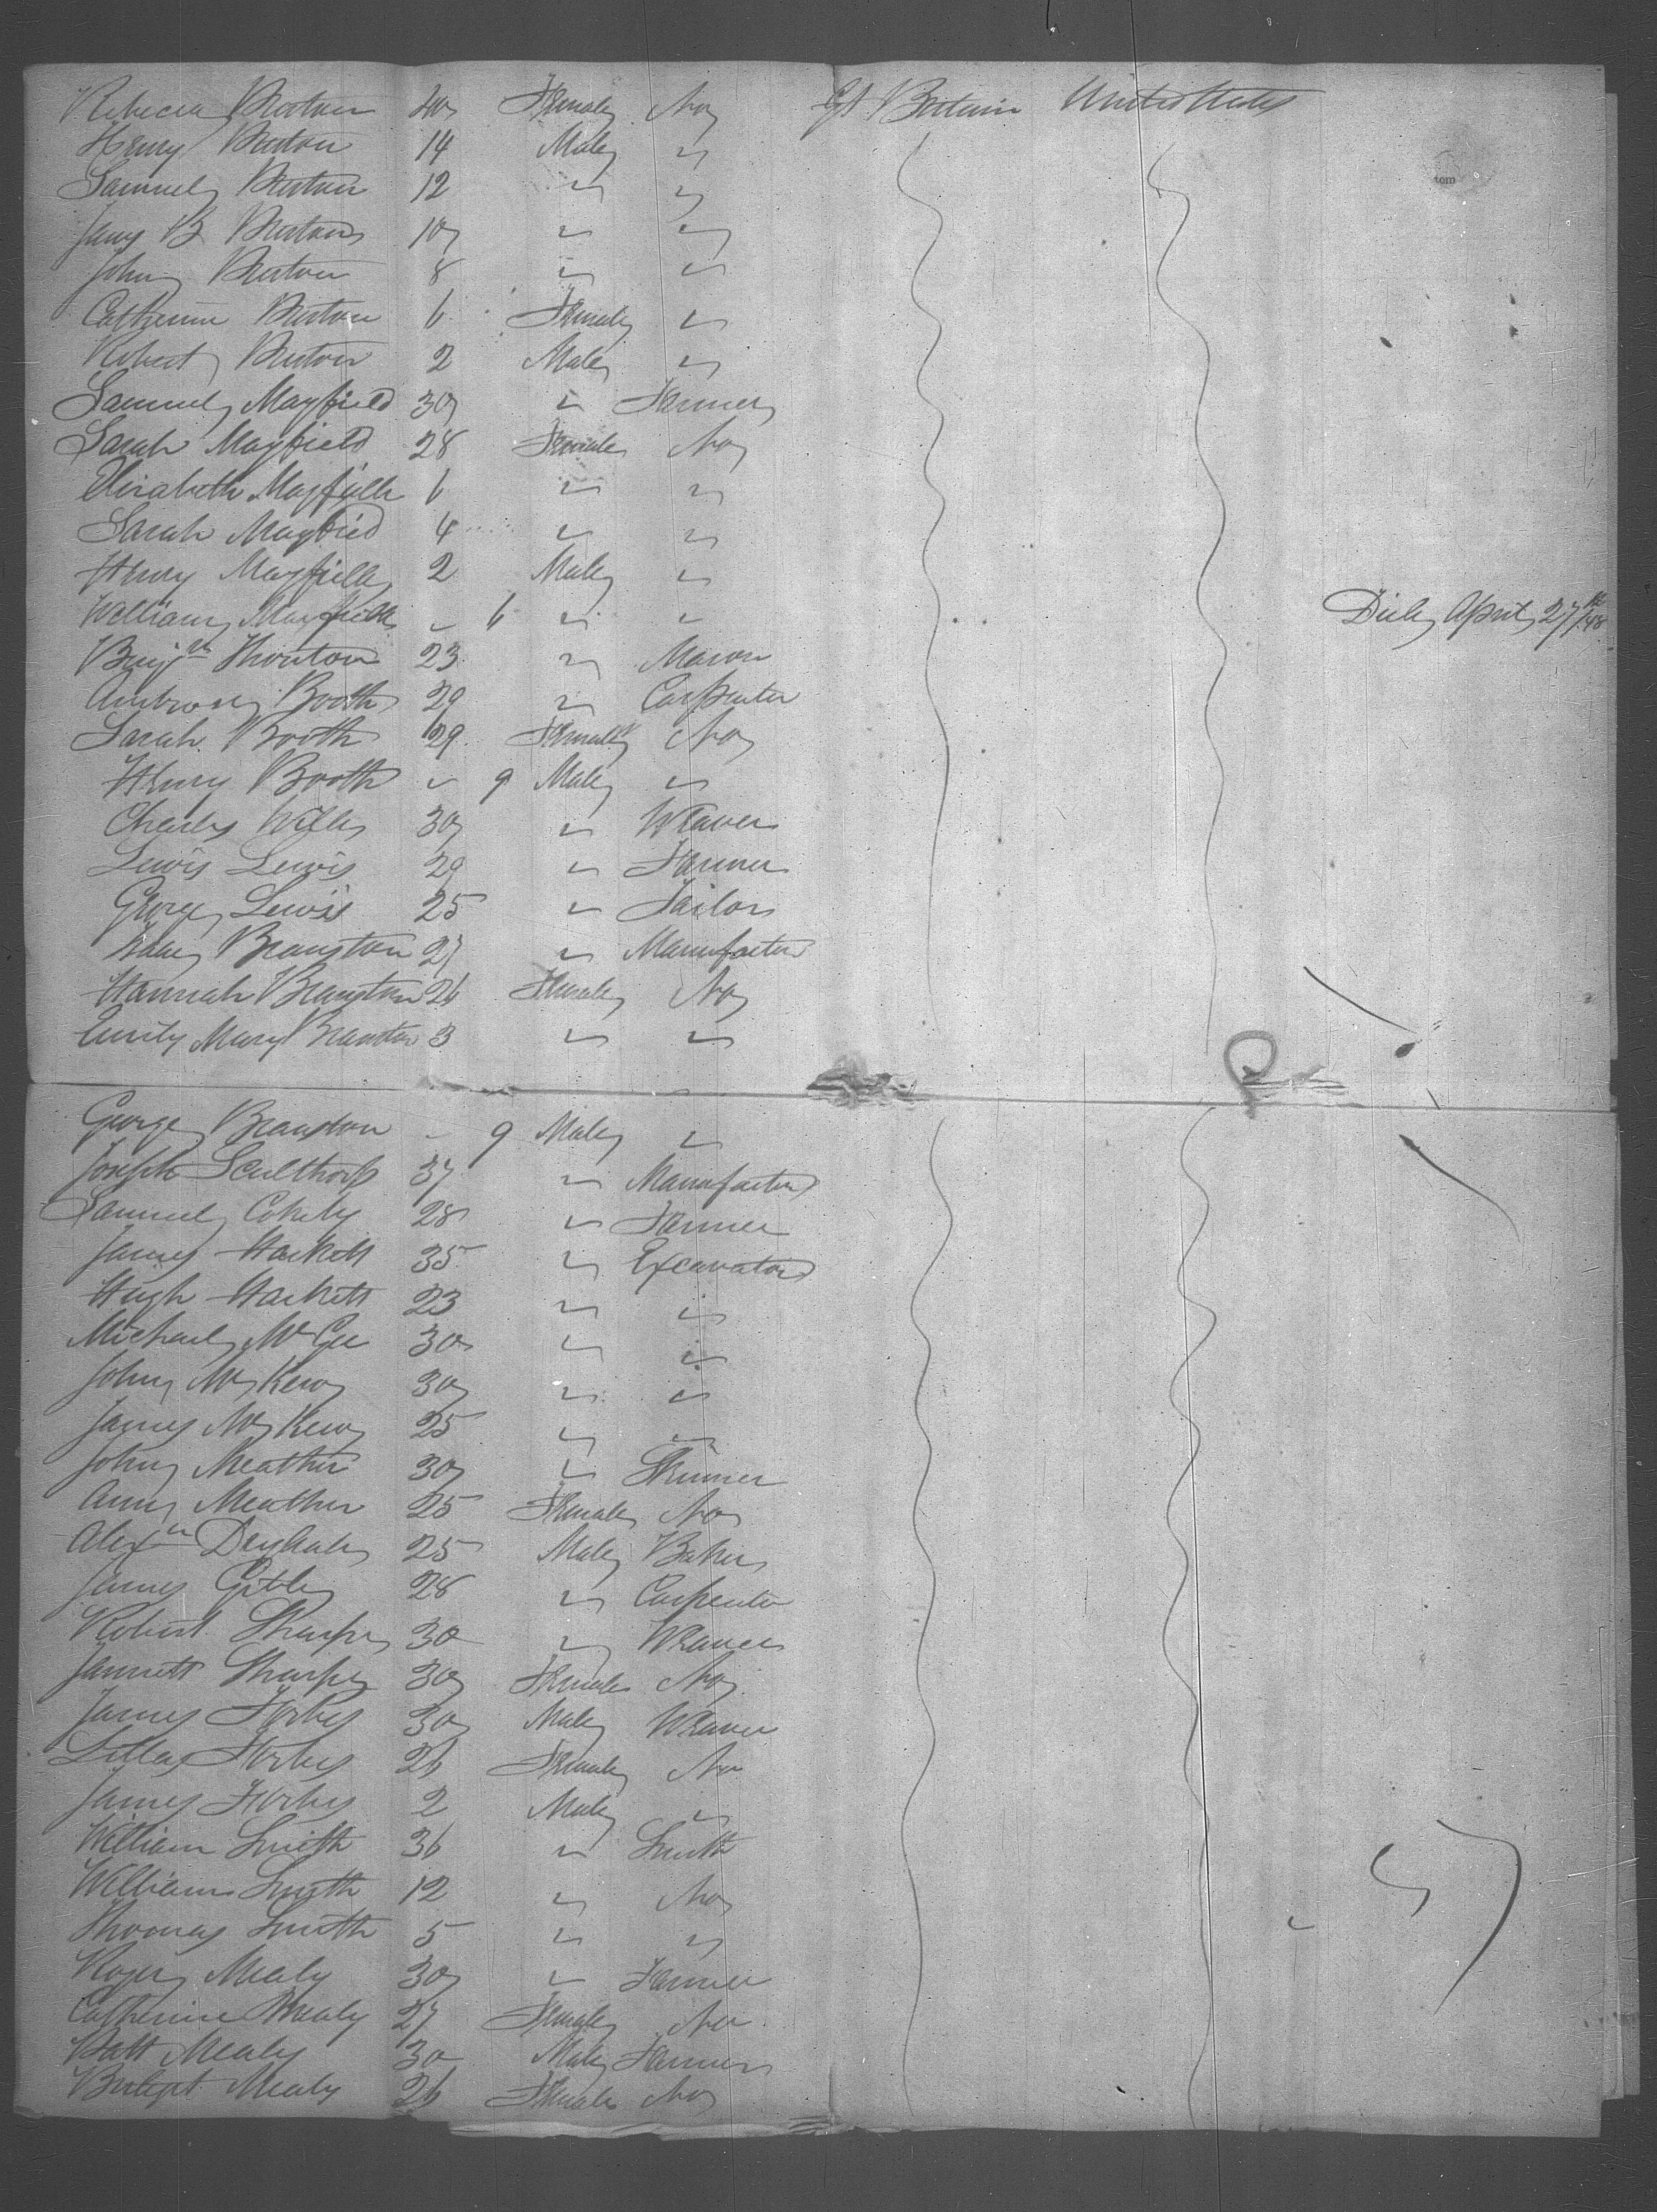 Rebecca Burton 40 Female No Gt Britain United States
Henry Burton 14 Male "
Samuel Burton 12 " "
James B Burton 10 " "
John Burton 8 " "
Catherine Burton 6 Female "
Robert Burton 2 Male "
tom
Samuel Mayfield 30 " Farmer
Sarah Mayfield 28 Female No
Elizabeth Mayfield 6 " "
Sarah Mayfield 4 " "
Henry Mayfield 2 Male "
William Mayfield " 6 " " Died April 27th /48
Benjn Thornton 23 " Mason
Ambrose Booth 29 " Carpenter
Sarah Booth 29 Female No
Henry Booth " 9 Male "
Charles Wills 30 " Weaver
Lewis Lewis 29 " Farmer
George Lewis 25 " Tailor
Isaac Branston 27 " Manufacter
Hannah Branston 26 Female No
Emily Mary Branston 3 " "
George Branston " 9 Male "
Joseph Sculthorp 37 " Manufacter
Samuel 28 " Farmer
James Hackett 35 " Excavator
Hugh Hackett 23 " "
Michael McGee 30 " "
John McKew 30 " "
James McKew 25 " "
John Meather 30 "
Ann Meather 25 Female No
Alexr 25 Male Baker
James 28 " Carpenter
Robert Sharpe 30 " Weaver
Jannett Sharpe 30 Female No
James Forbes 30 Male Weaver
Lillas Forbes 26 Female No
James Forbes 2 Male "
William Smith 36 " Smith
William Smith 12 " No
Thomas Smith 5 " "
Roger Mealy 30 " Farmer
Catherine Mealy 27 Female No
Patt Mealy 30 Male Farmer
Bridget Mealy 26 Female No